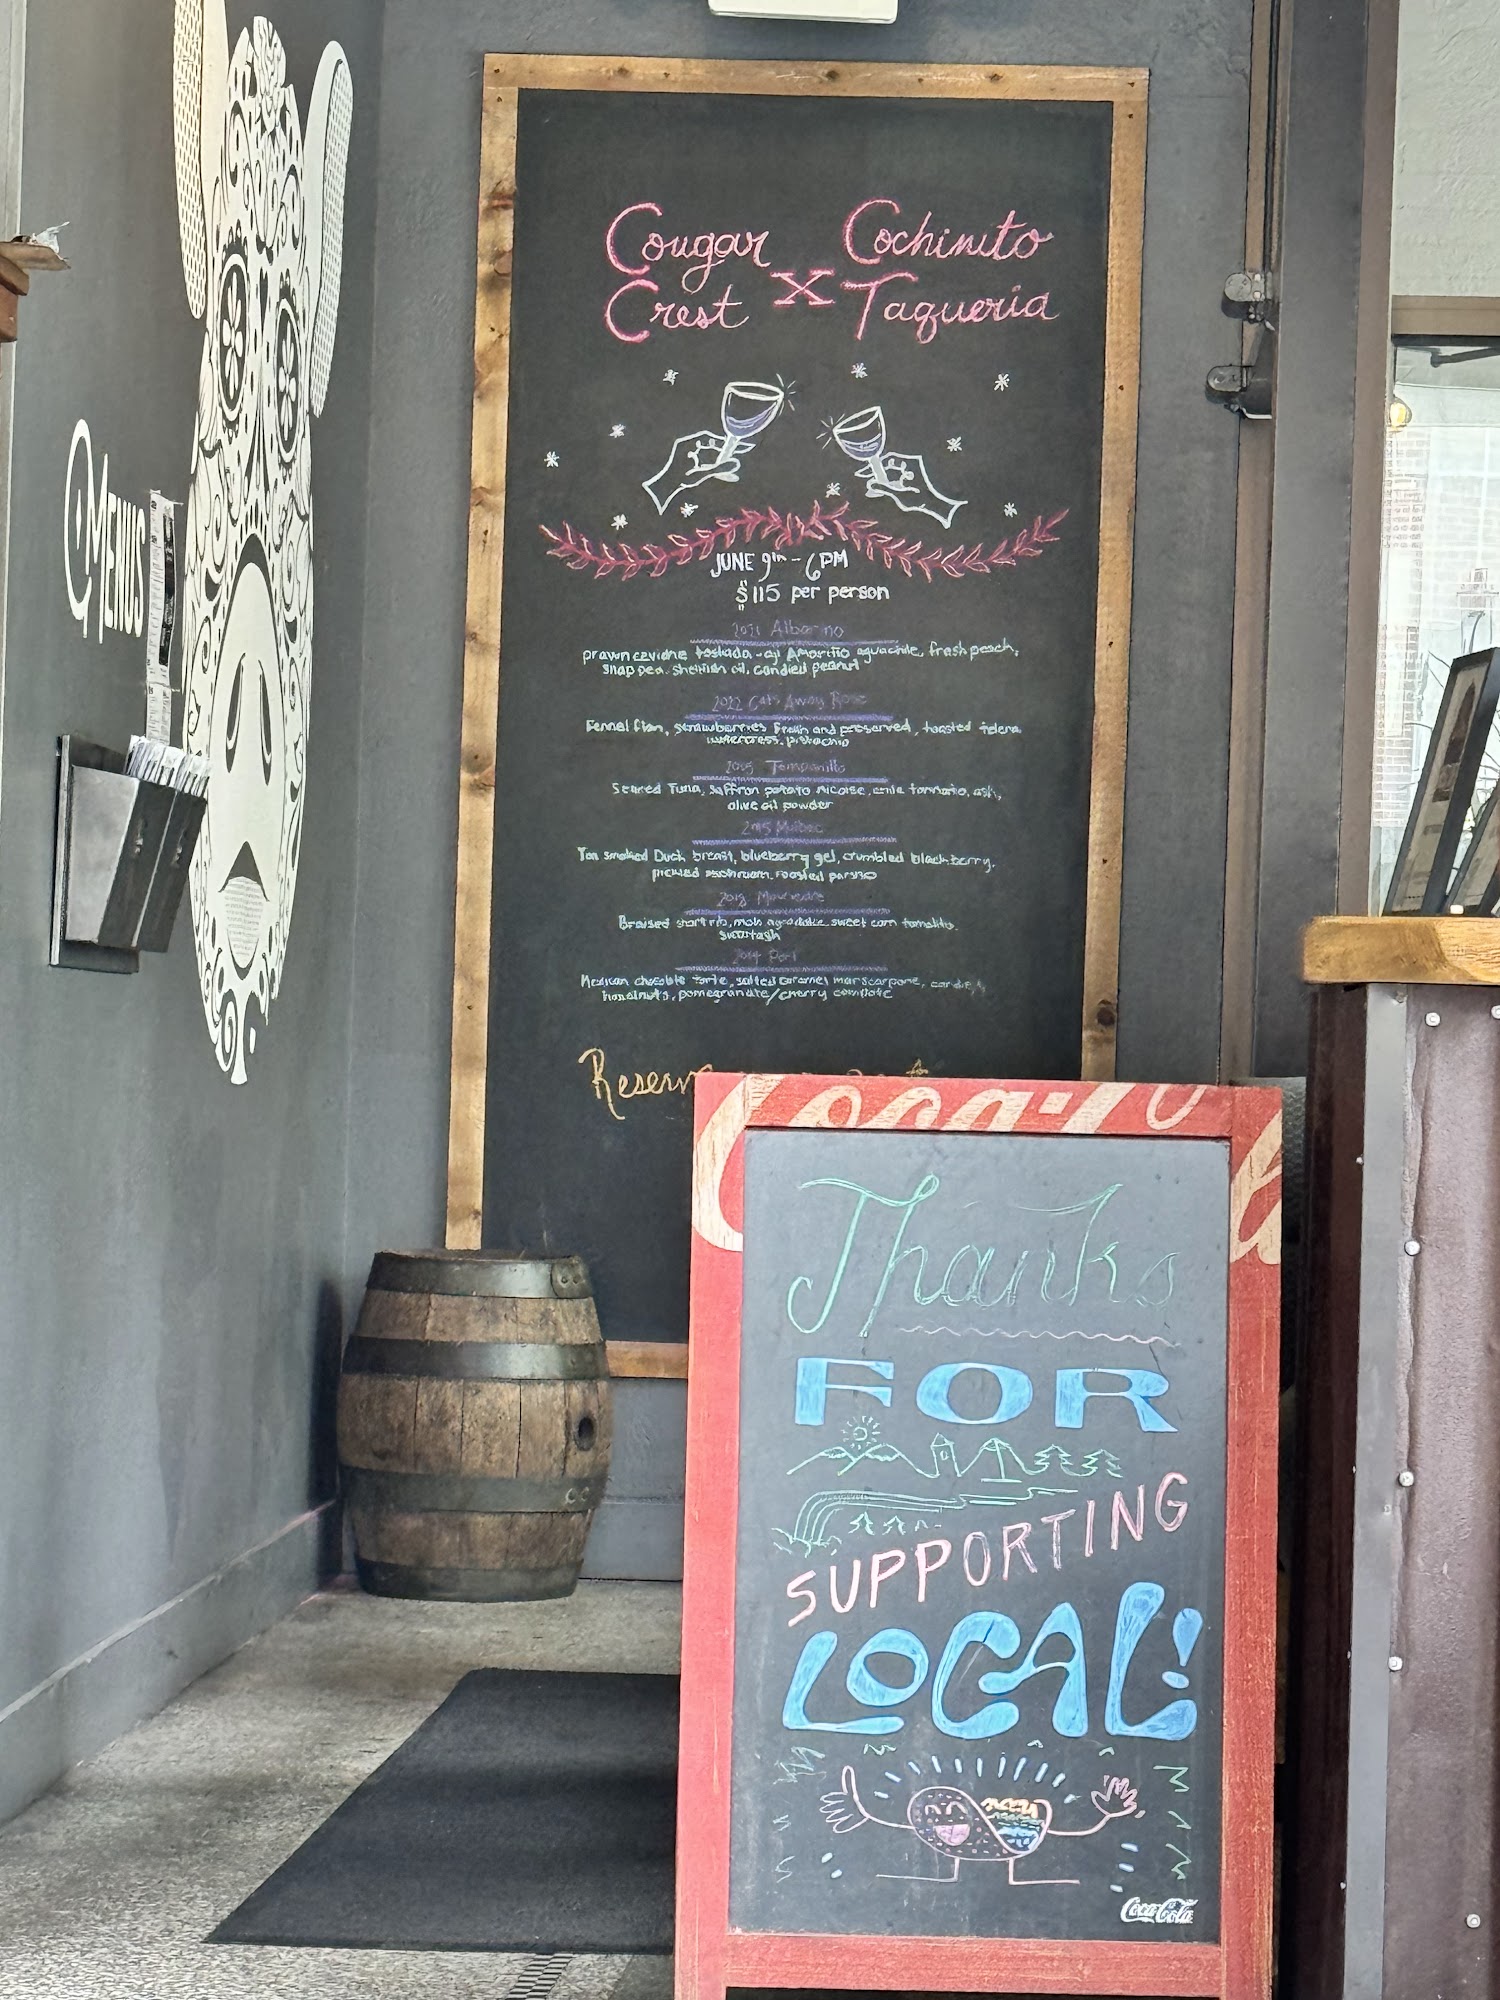 Cougar Crest X Cochinito Taqueria
JUNE 9th - 6PM
$115 per person
2021 Albarino
prawn ceviche tostada - aji Amarillo aguachile, fresh peach,
snap pea, shellfish oil, candied peanut
2022 Cats Away Rose
Fennel flan, strawberries fresh and preserved, toasted
watercress, pistachio
Tempranillo
Seared Tuna, saffron potato nicoise, chile tomato, ash,
olive oil powder
2015 Malbec
Tea smoked Duck breast, blueberry gel, crumbled blackberry,
pickled mushroom, roasted
2018
Braised short rib, mole sweet corn tamalito,
succotash
2014 Port
Mexican chocolate torte, salted caramel marscarpone,
hazelnuts, pomegranate/cherry compote
MENUS
Thanks
FOR
SUPPORTING
LOCAL!
Coca-Cola